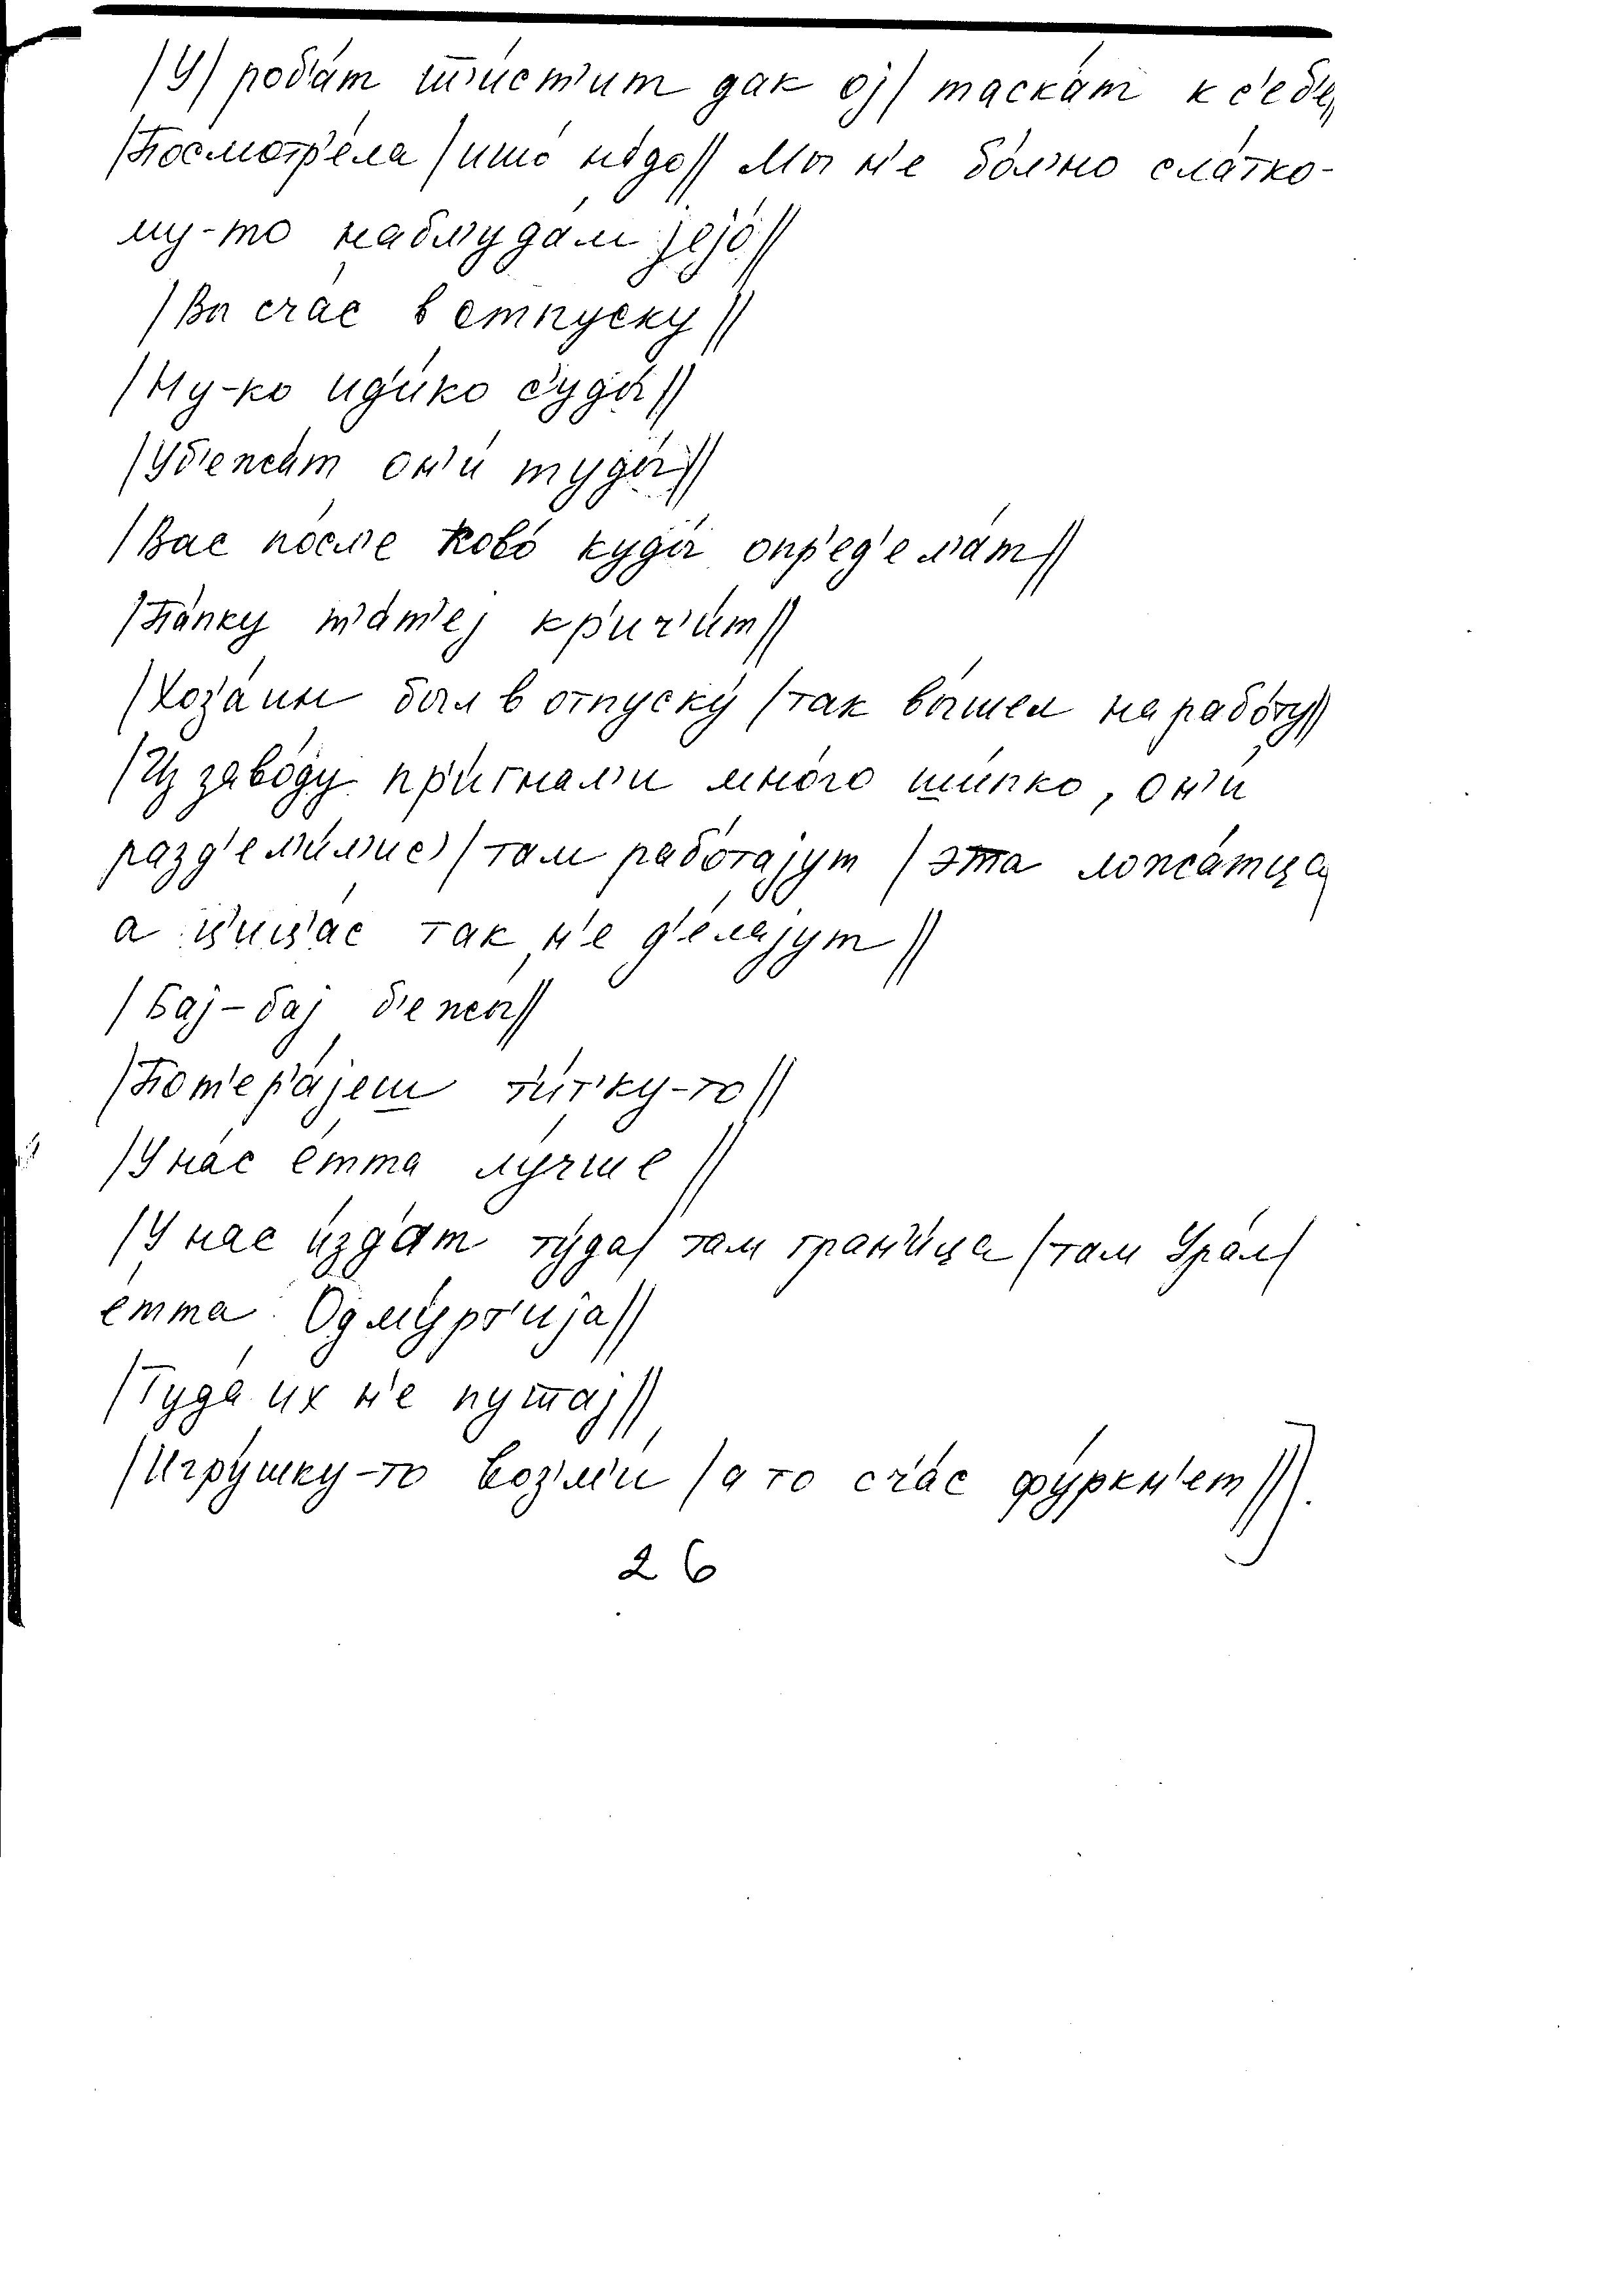 /У/ роб'а́т т'и́ст'ит дак ој/ таска́т к с'еб'е́//
/Посмотр'е́ла /ишо́ на́до// Мы н'е бо́л'но сла́тко-
му-то набл'уда́ли јејо́//
/Вы сча́с в отпуску́//
/Ну-ко ид'и́ко с'уды́//
/Уб'ежа́т он'и́ туды́//
/Вас по́сл'е ково́ куды́ опр'ед'ел'а́т//
/Па́пку т'а́т'еј кр'ич'и́т//
/Хоз'а́ин был в отпуску́ /так вы́шел на рабо́ту//
/Из заво́ду пр'игнал'и мно́го ши́пко, он'и́
разд'ел'и́л'ис' /там рабо́тајут /эта ложа́тца
а ц'иц'а́с так н'е д'е́лајут//
/Бај-бај б'ежы́//
/Пот'ер'а́јеш т'и́т'ку-то//
/У на́с е́тта лу́чше//
/У нас и́зд'ат туда́/ там гран'и́ца /там Ура́л/
е́тта Одму́рт'ија//
/Туда́ их н'е пута́ј//
/Игру́шку-то воз'м'и́ /а то сча́с фу́ркн'ет//].
26